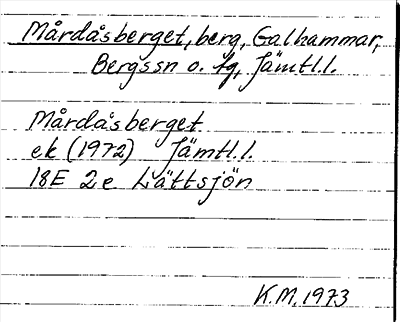 Mårdåsberget, berg, Galhammar,
Bergssn o. tg, Jämtl.l.
Mårdåsberget
ek (1972) Jämtl.l.
18E 2e Lättsjön
K.M. 1973